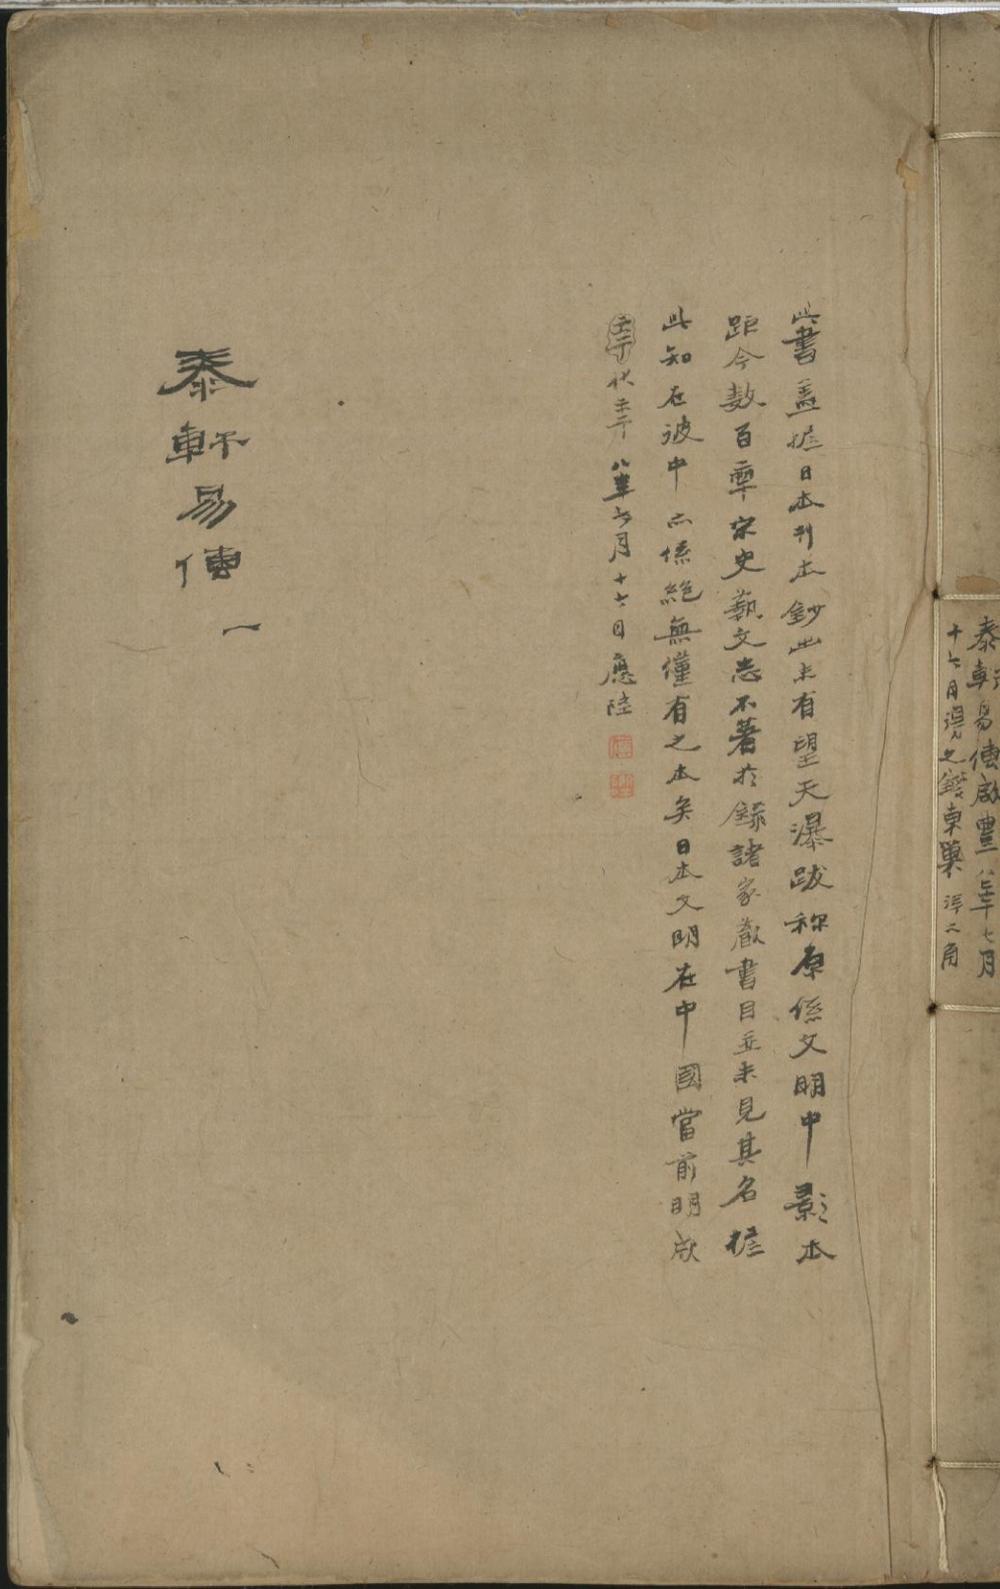 泰軒易傳啟豐八三年七月
十六月得之錢東巢洋二角
此書蓋據日本刊本鈔出末有望天瀑跋稱原係文明中影本
距今數百零宋史藝文志不著於錄諸家藏書目並未見其名據
此知在彼中亦係絕無僅有之本矣日本文明在中國當前明成
八年六月十六日應陸
泰軒易傳
一